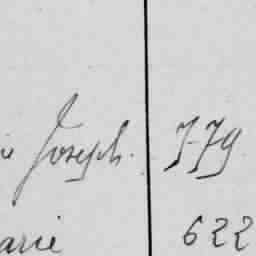 Joseph. 779
arie 622